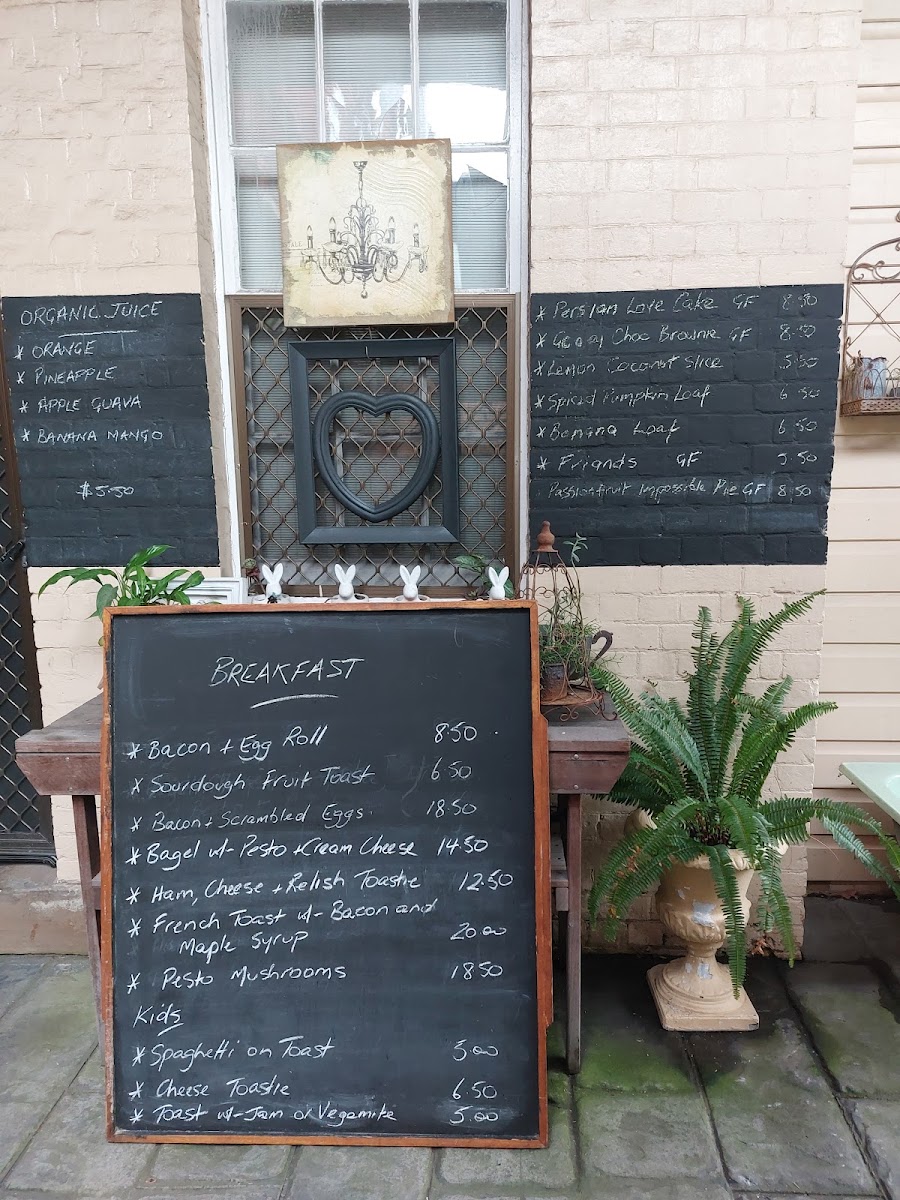 ORGANIC JUICE
* ORANGE
* PINEAPPLE
* APPLE GUAVA
* BANANA MANGO
$5.50
* Persian Love Cake GF 8.50
* Gooey Choc Brownie GF 8.50
* Lemon Coconut Slice 5.50
* Spiced Pumpkin Loaf 6.50
* Banana Loaf 6.50
* Friands GF 5.50
Passionfruit Impossible Pie GF 8.50
BREAKFAST
* Bacon + Egg Roll 8.50
* Sourdough Fruit Toast 6.50
* Bacon + Scrambled Eggs 18.50
* Bagel w- Pesto + Cream Cheese 14.50
* Ham, Cheese + Relish Toastie 12.50
* French Toast w- Bacon and
Maple Syrup 20.00
* Pesto Mushrooms 18.50
Kids
* Spaghetti on Toast 5.00
* Cheese Toastie 6.50
* Toast w- Jam or Vegemite 5.00